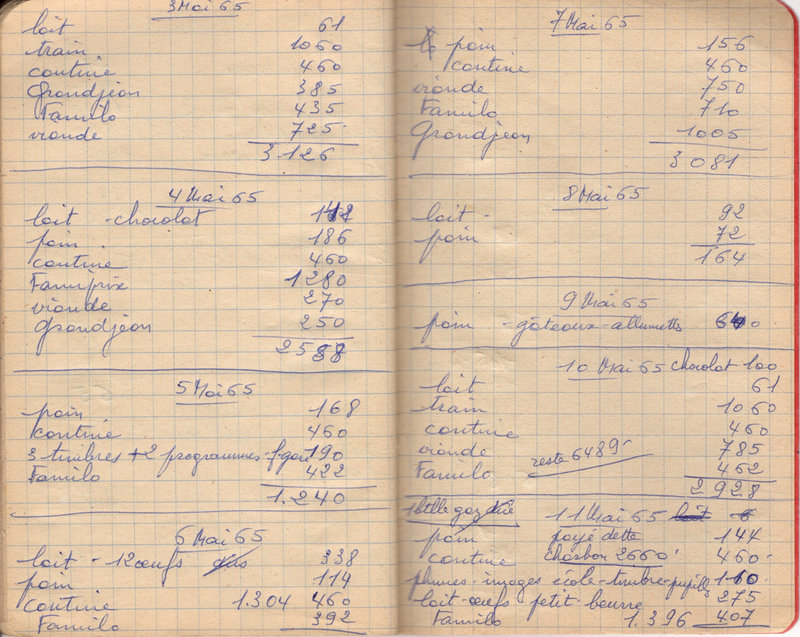 3 Mai 65
lait 61
train 1060
cantine 460
Grandjean 385
Familo 435
viande 725
3.126
4 Mai 65
lait - chocolat 142
pain 186
cantine 460
Familprix 1280
viande 270
Grandjean 250
2588
5 Mai 65
pain 168
cantine 460
3 timbres + 2 programmes - 190
Familo 422
1.240
6 Mai 65
lait - 12 œufs 338
pain 114
cantine 1.304 460
Familo 392
7 Mai 65
pain 156
cantine 460
viande 750
Familo 710
Grandjean 1005
3081
8 Mai 65
lait - 92
pain 72
164
9 Mai 65
pain - gâteaux - allumettes 640
10 Mai 65 chocolat 100
lait 61
train 1060
cantine 460
viande 785
Familo reste 6489 462
2928
1 btlle gaz dûe 11 Mai 65 lait
pain payé dette 144
cantine charbon 2660 460
plumes - images école - timbre - pupilles 110
lait - œufs petit-beurre 275
Familo 1.396 407